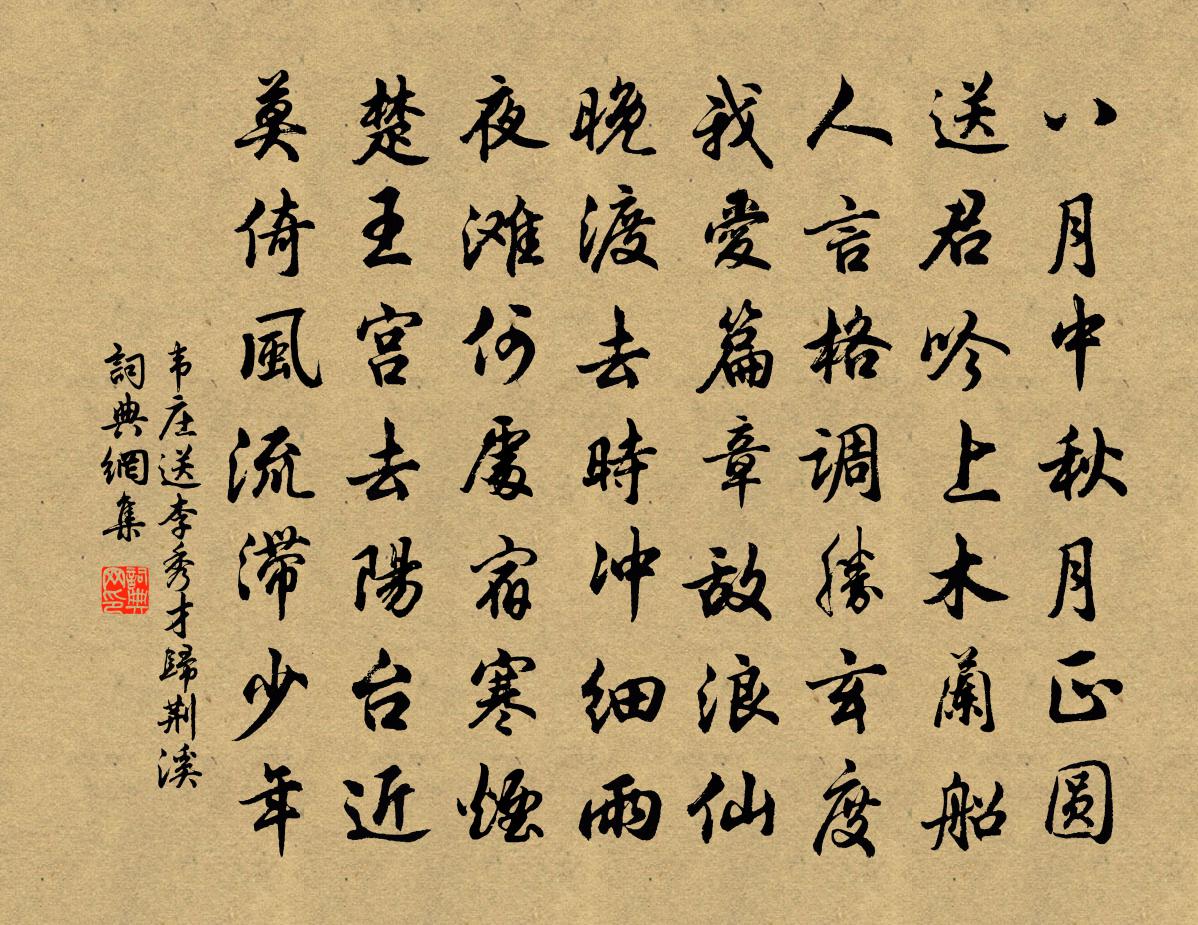 八月中秋月正圆
送君吟上木蘭船
人言格调勝玄度
我愛篇章敌浪仙
晚渡去時冲细雨
夜滩何處宿寒煙
楚王宫去陽台近
莫倚風流滞少年
韦庄送李秀才歸荆溪
詞典網集
詞典网印